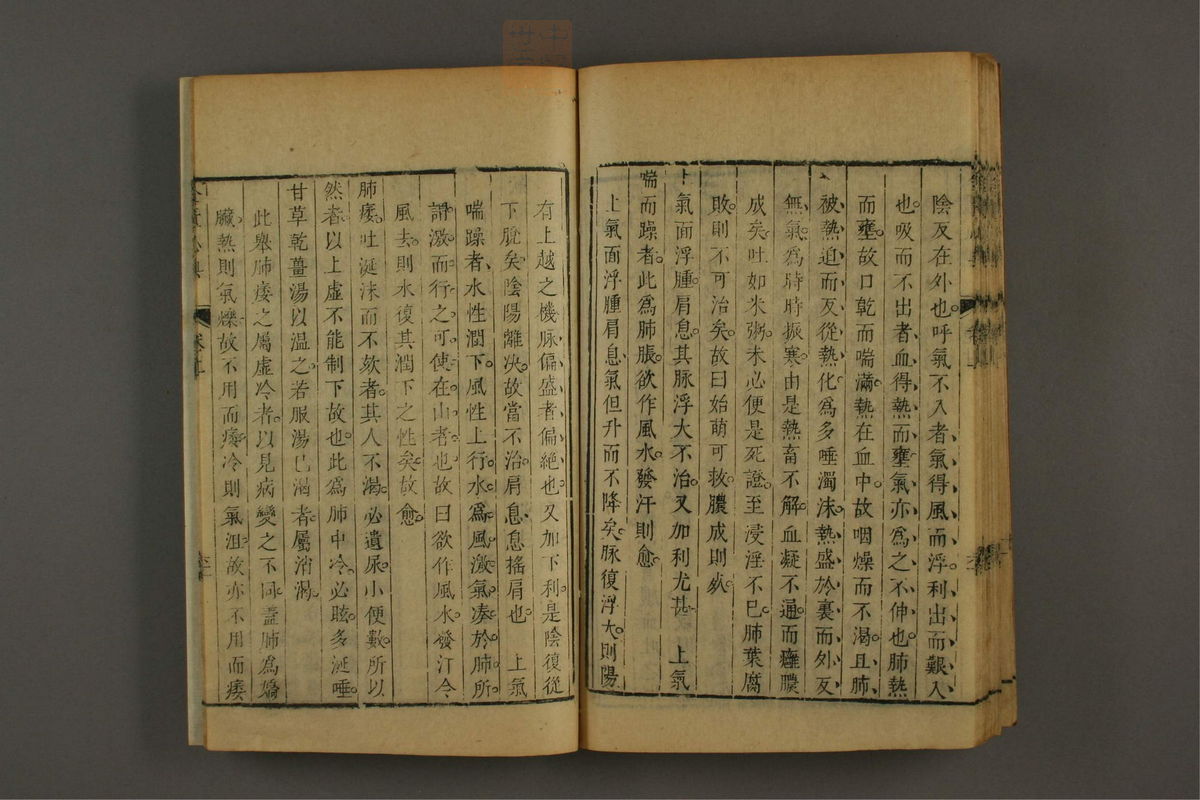 陰反在外也呼氣不入者氣得風而浮利出而艱入
也吸而不出者血得熱而壅氣亦爲之不伸也肺熱
而壅故口乾而喘滿熱在血中故咽燥而不渴且肺
被熱迫而反從熱化爲多唾濁沫熱盛於裏而外反
無氣爲時時振寒由是熱畜不解血凝不通而癰膿
成矣吐如米粥未必便是死證至浸淫不已肺葉腐
敗則不可治矣故曰始萌可救膿成則死
上氣面浮腫肩息其脉浮大不治又加利尤甚 上氣
喘而躁者此爲肺脹欲作風水發汗則愈
上氣面浮腫肩息氣但升而不降矣脉復浮大則陽
有上越之機脉偏盛者偏絶也又加下利是陰復從
下脫矣陰陽離决故當不治肩息息搖肩也 上氣
喘躁者水性潤下風性上行水爲風激氣凑於肺所
謂激而行之可使在山者也故曰欲作風水發汗令
風去則水復其潤下之性矣故愈
肺痿吐涎沫而不欬者其人不渴必遺尿小便數所以
然者以上虛不能制下故也此爲肺中冷必眩多涎唾
甘草乾薑湯以温之若服湯已渴者屬消渴
此舉肺痿之屬虛冷者以見病變之不同盖肺爲嬌
臟熱則氣爍故不用而痿冷則氣沮故亦不用而痿
心典
卷上